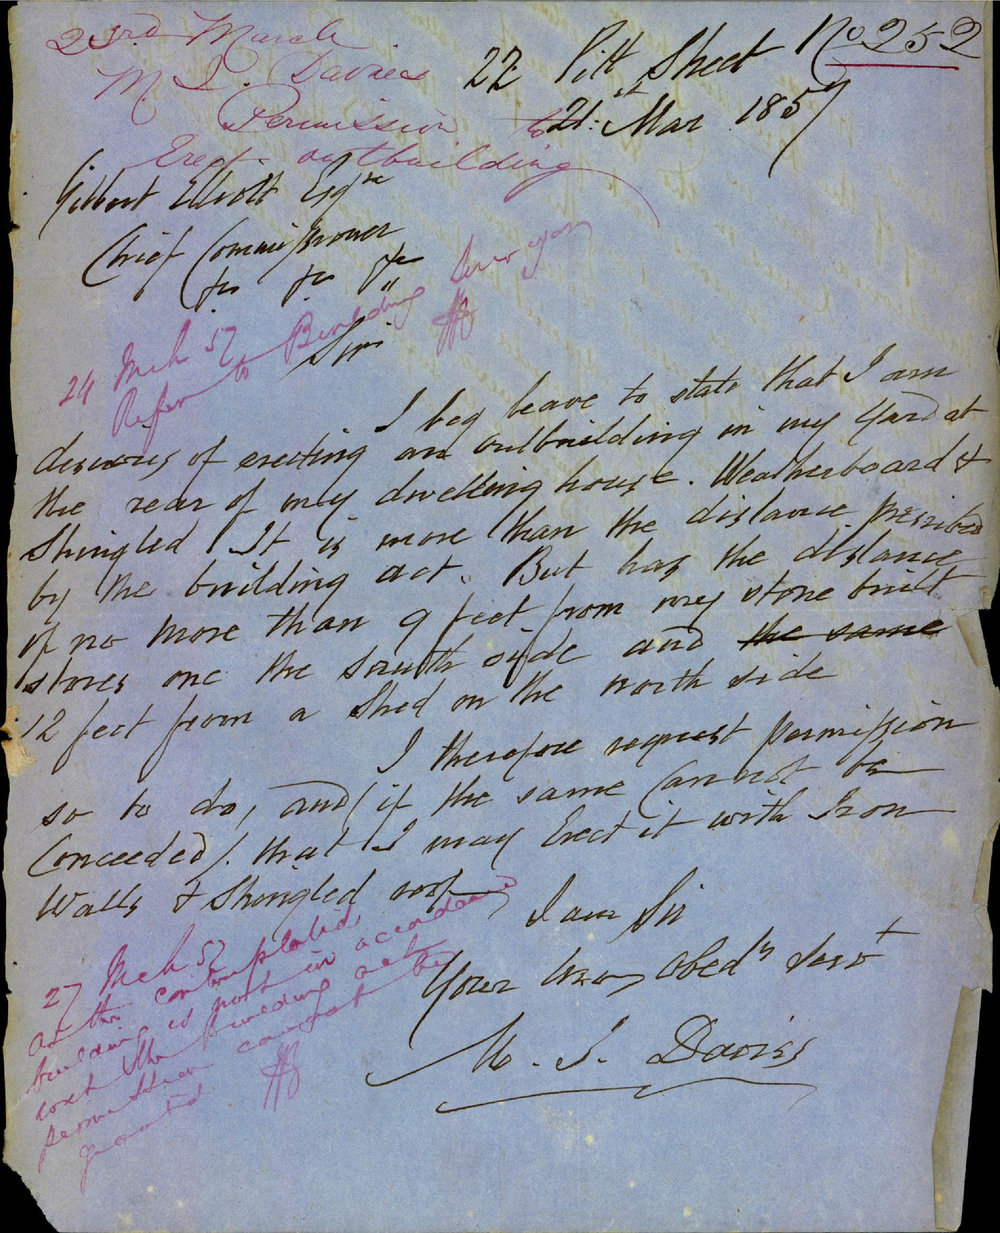 No 252
23rd March
M. I. Davies
Permission to
Erect outbuilding
22 Pitt Street
21st Mar 1857
Gilbert Elliott Esqre
Chief Commissioner
&c &c &c
24 Mch 57
Refer to Building Surveyor
Sir
I beg leave to state that I am
desirous of erecting an outbuilding in my yard at
the rear of my dwelling house. Weatherboard &
Shingled It is more than the distance prescribed
by the building act. But has the distance
of no more than 9 feet from my stone built
stores one the south side and the same
12 feet from a Shed on the north side
I therefore request permission
so to do, and (if the same cannot be
Conceeded) that I may Erect it with Iron
Walls & Shingled roof
I am Sir
Your Obedt Servt
M. I. Davies
27 Mch 57
As the contemplated
building is not in accordance
with the Building act
permission cannot be
granted